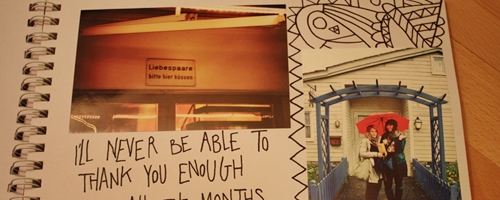 Liebespaare
bitte hier küssen
I'LL NEVER BE ABLE TO
THANK YOU ENOUGH
MONTHS